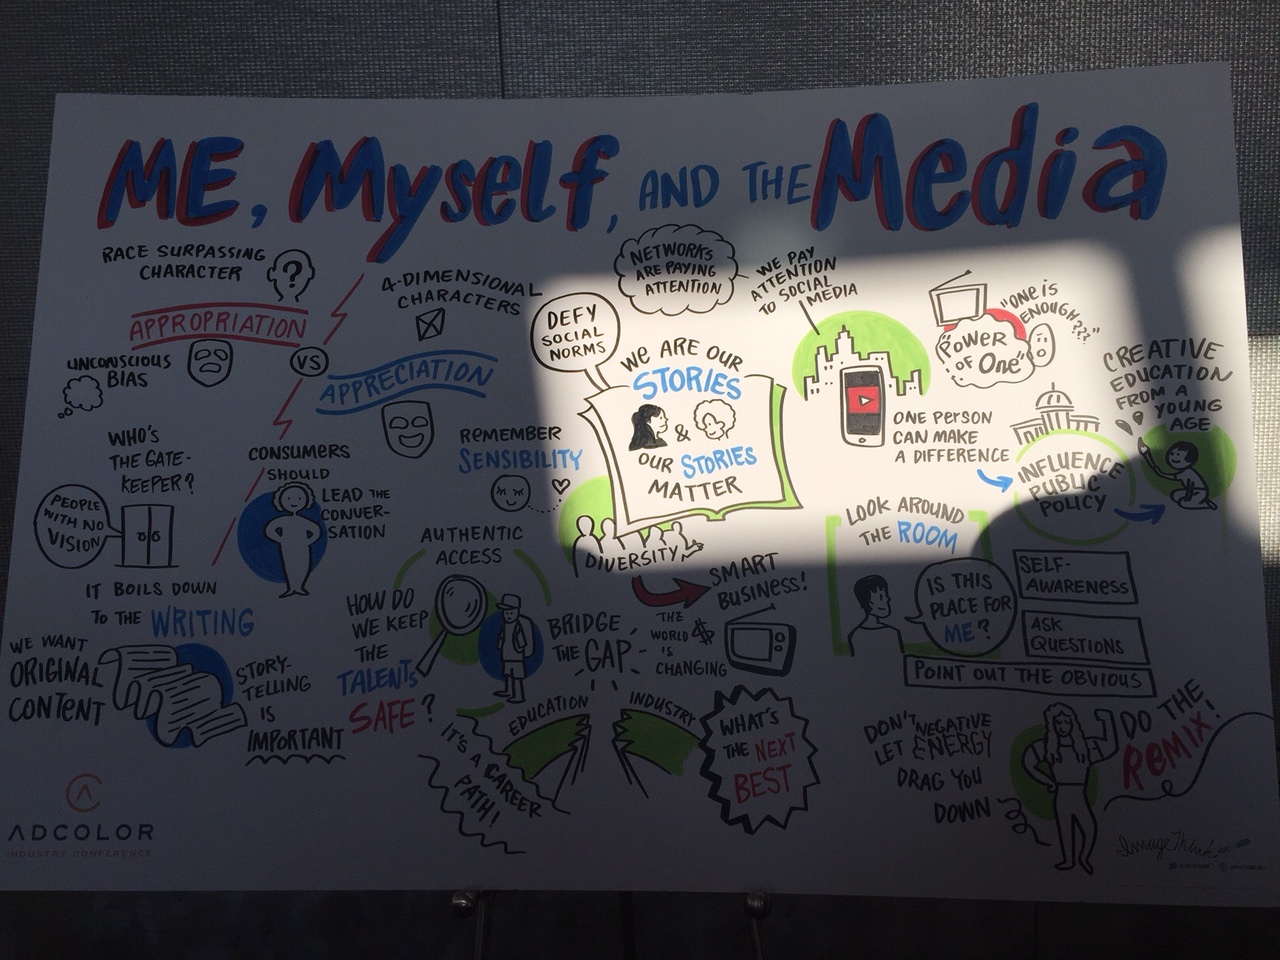 ME, Myself, AND THE Media
RACE SURPASSING
CHARACTER
?
APPROPRIATION
UNCONSCIOUS
BIAS
VS
4-DIMENSIONAL
CHARACTERS
APPRECIATION
WHO'S
THE GATE-
KEEPER?
PEOPLE
WITH NO
VISION
CONSUMERS
SHOULD
LEAD THE
CONVER-
SATION
REMEMBER
SENSIBILITY
IT BOILS DOWN
TO THE WRITING
WE WANT
ORIGINAL
CONTENT
STORY-
TELLING
IS
IMPORTANT
AUTHENTIC
ACCESS
HOW DO
WE KEEP
THE
TALENTS
SAFE?
NETWORKS
ARE PAYING
ATTENTION
WE PAY
ATTENTION
TO SOCIAL
MEDIA
DEFY
SOCIAL
NORMS
WE ARE OUR
STORIES
&
OUR STORIES
MATTER
DIVERSITY
SMART
BUSINESS!
THE
WORLD $
IS
CHANGING
BRIDGE
THE GAP
EDUCATION
INDUSTRY
IT'S A CAREER
PATH!
WHAT'S
THE NEXT
BEST
"POWER
OF ONE"
"ONE IS
ENOUGH???"
ONE PERSON
CAN MAKE
A DIFFERENCE
INFLUENCE
PUBLIC
POLICY
CREATIVE
EDUCATION
FROM A
YOUNG
AGE
LOOK AROUND
THE ROOM
IS THIS
PLACE FOR
ME?
SELF-
AWARENESS
ASK
QUESTIONS
POINT OUT THE OBVIOUS
DON'T NEGATIVE
LET ENERGY
DRAG YOU
DOWN
DO THE
REMIX!
ADCOLOR
INDUSTRY CONFERENCE
ImageThink